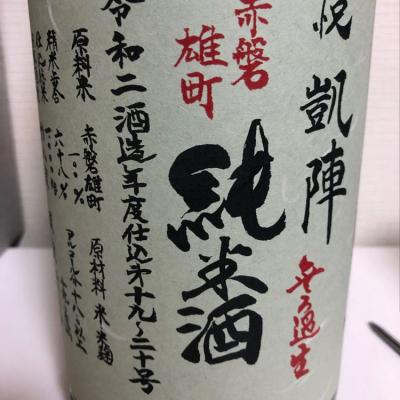 悦 凱陣
無ろ過生
赤磐
雄町
純米酒
令和二酒造年度仕込第十九~二十号
原料米 赤磐雄町 一〇〇%
精米歩合 六十八%
原材料 米 米麹
アルコール分十八